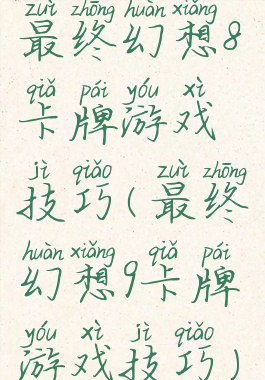 zuì zhōng huàn xiǎng
最终幻想8
qiǎ pái yóu xì
卡牌游戏
jì qiǎo zuì zhōng
技巧(最终
huàn xiǎng qiǎ pái
幻想9卡牌
yóu xì jì qiǎo
游戏技巧)